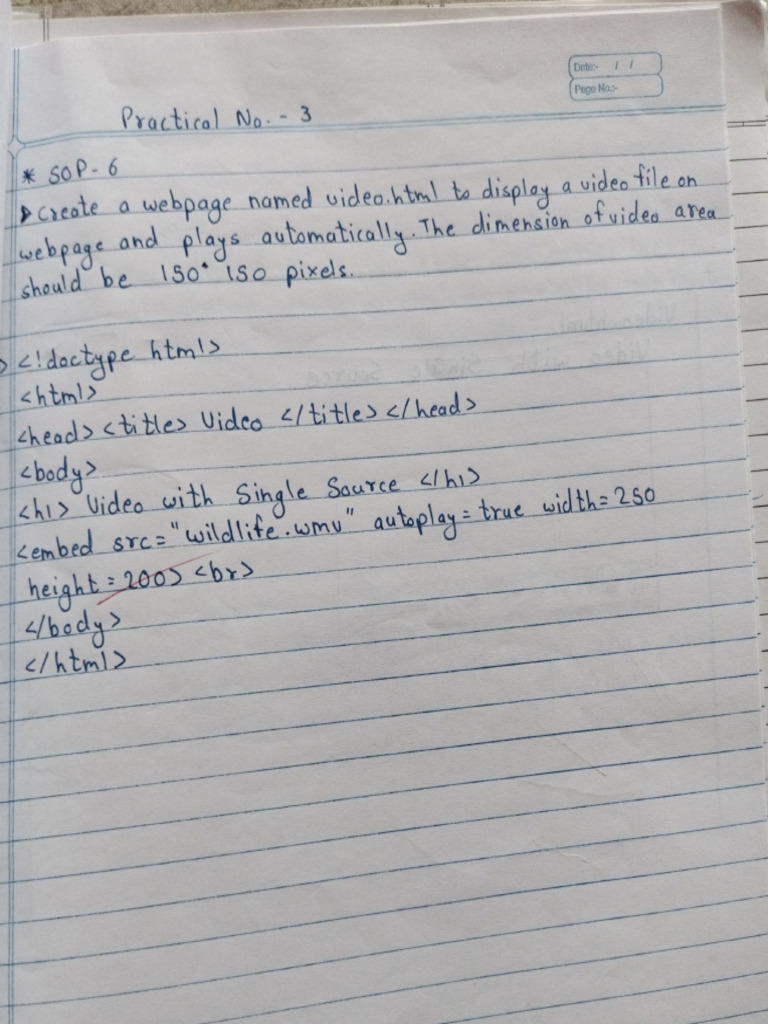 Date:- / /
Page No.:-
Practical No. - 3
* SOP - 6
Create a webpage named video.html to display a video file on
webpage and plays automatically. The dimension of video area
should be 150* 150 pixels.
<!doctype html>
<html>
<head> <title> Video </title> </head>
<body>
<h1> Video with Single Source </h1>
<embed src="wildlife.wmv" autoplay=true width=250
height=200> <br>
</body>
</html>